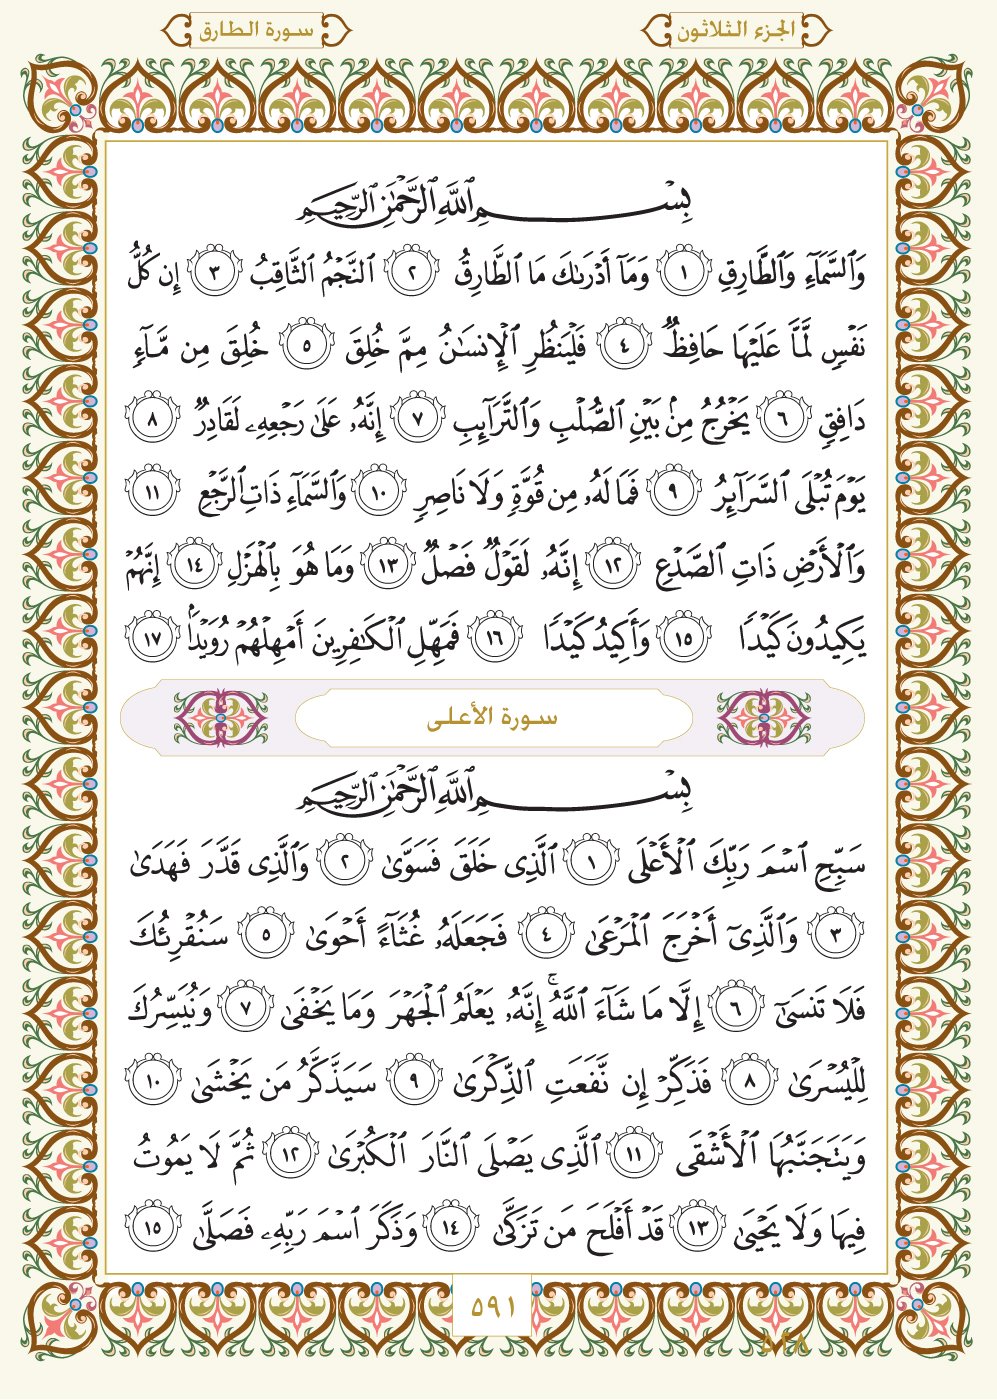 الجزء الثلاثون
سورة الطارق
بِسْمِ ٱللَّهِ ٱلرَّحْمَٰنِ ٱلرَّحِيمِ
وَٱلسَّمَآءِ وَٱلطَّارِقِ ١ وَمَآ أَدْرَىٰكَ مَا ٱلطَّارِقُ ٢ ٱلنَّجْمُ ٱلثَّاقِبُ ٣ إِن كُلُّ
نَفْسٍ لَّمَّا عَلَيْهَا حَافِظٌ ٤ فَلْيَنظُرِ ٱلْإِنسَٰنُ مِمَّ خُلِقَ ٥ خُلِقَ مِن مَّآءٍ
دَافِقٍ ٦ يَخْرُجُ مِنۢ بَيْنِ ٱلصُّلْبِ وَٱلتَّرَآئِبِ ٧ إِنَّهُۥ عَلَىٰ رَجْعِهِۦ لَقَادِرٌ ٨
يَوْمَ تُبْلَى ٱلسَّرَآئِرُ ٩ فَمَا لَهُۥ مِن قُوَّةٍ وَلَا نَاصِرٍ ١٠ وَٱلسَّمَآءِ ذَاتِ ٱلرَّجْعِ ١١
وَٱلْأَرْضِ ذَاتِ ٱلصَّدْعِ ١٢ إِنَّهُۥ لَقَوْلٌ فَصْلٌ ١٣ وَمَا هُوَ بِٱلْهَزْلِ ١٤ إِنَّهُمْ
يَكِيدُونَ كَيْدًا ١٥ وَأَكِيدُ كَيْدًا ١٦ فَمَهِّلِ ٱلْكَٰفِرِينَ أَمْهِلْهُمْ رُوَيْدًۢا ١٧
سورة الأعلى
بِسْمِ ٱللَّهِ ٱلرَّحْمَٰنِ ٱلرَّحِيمِ
سَبِّحِ ٱسْمَ رَبِّكَ ٱلْأَعْلَى ١ ٱلَّذِى خَلَقَ فَسَوَّىٰ ٢ وَٱلَّذِى قَدَّرَ فَهَدَىٰ
٣ وَٱلَّذِىٓ أَخْرَجَ ٱلْمَرْعَىٰ ٤ فَجَعَلَهُۥ غُثَآءً أَحْوَىٰ ٥ سَنُقْرِئُكَ
فَلَا تَنسَىٰٓ ٦ إِلَّا مَا شَآءَ ٱللَّهُ ۚ إِنَّهُۥ يَعْلَمُ ٱلْجَهْرَ وَمَا يَخْفَىٰ ٧ وَنُيَسِّرُكَ
لِلْيُسْرَىٰ ٨ فَذَكِّرْ إِن نَّفَعَتِ ٱلذِّكْرَىٰ ٩ سَيَذَّكَّرُ مَن يَخْشَىٰ ١٠
وَيَتَجَنَّبُهَا ٱلْأَشْقَى ١١ ٱلَّذِى يَصْلَى ٱلنَّارَ ٱلْكُبْرَىٰ ١٢ ثُمَّ لَا يَمُوتُ
فِيهَا وَلَا يَحْيَىٰ ١٣ قَدْ أَفْلَحَ مَن تَزَكَّىٰ ١٤ وَذَكَرَ ٱسْمَ رَبِّهِۦ فَصَلَّىٰ ١٥
٥٩١